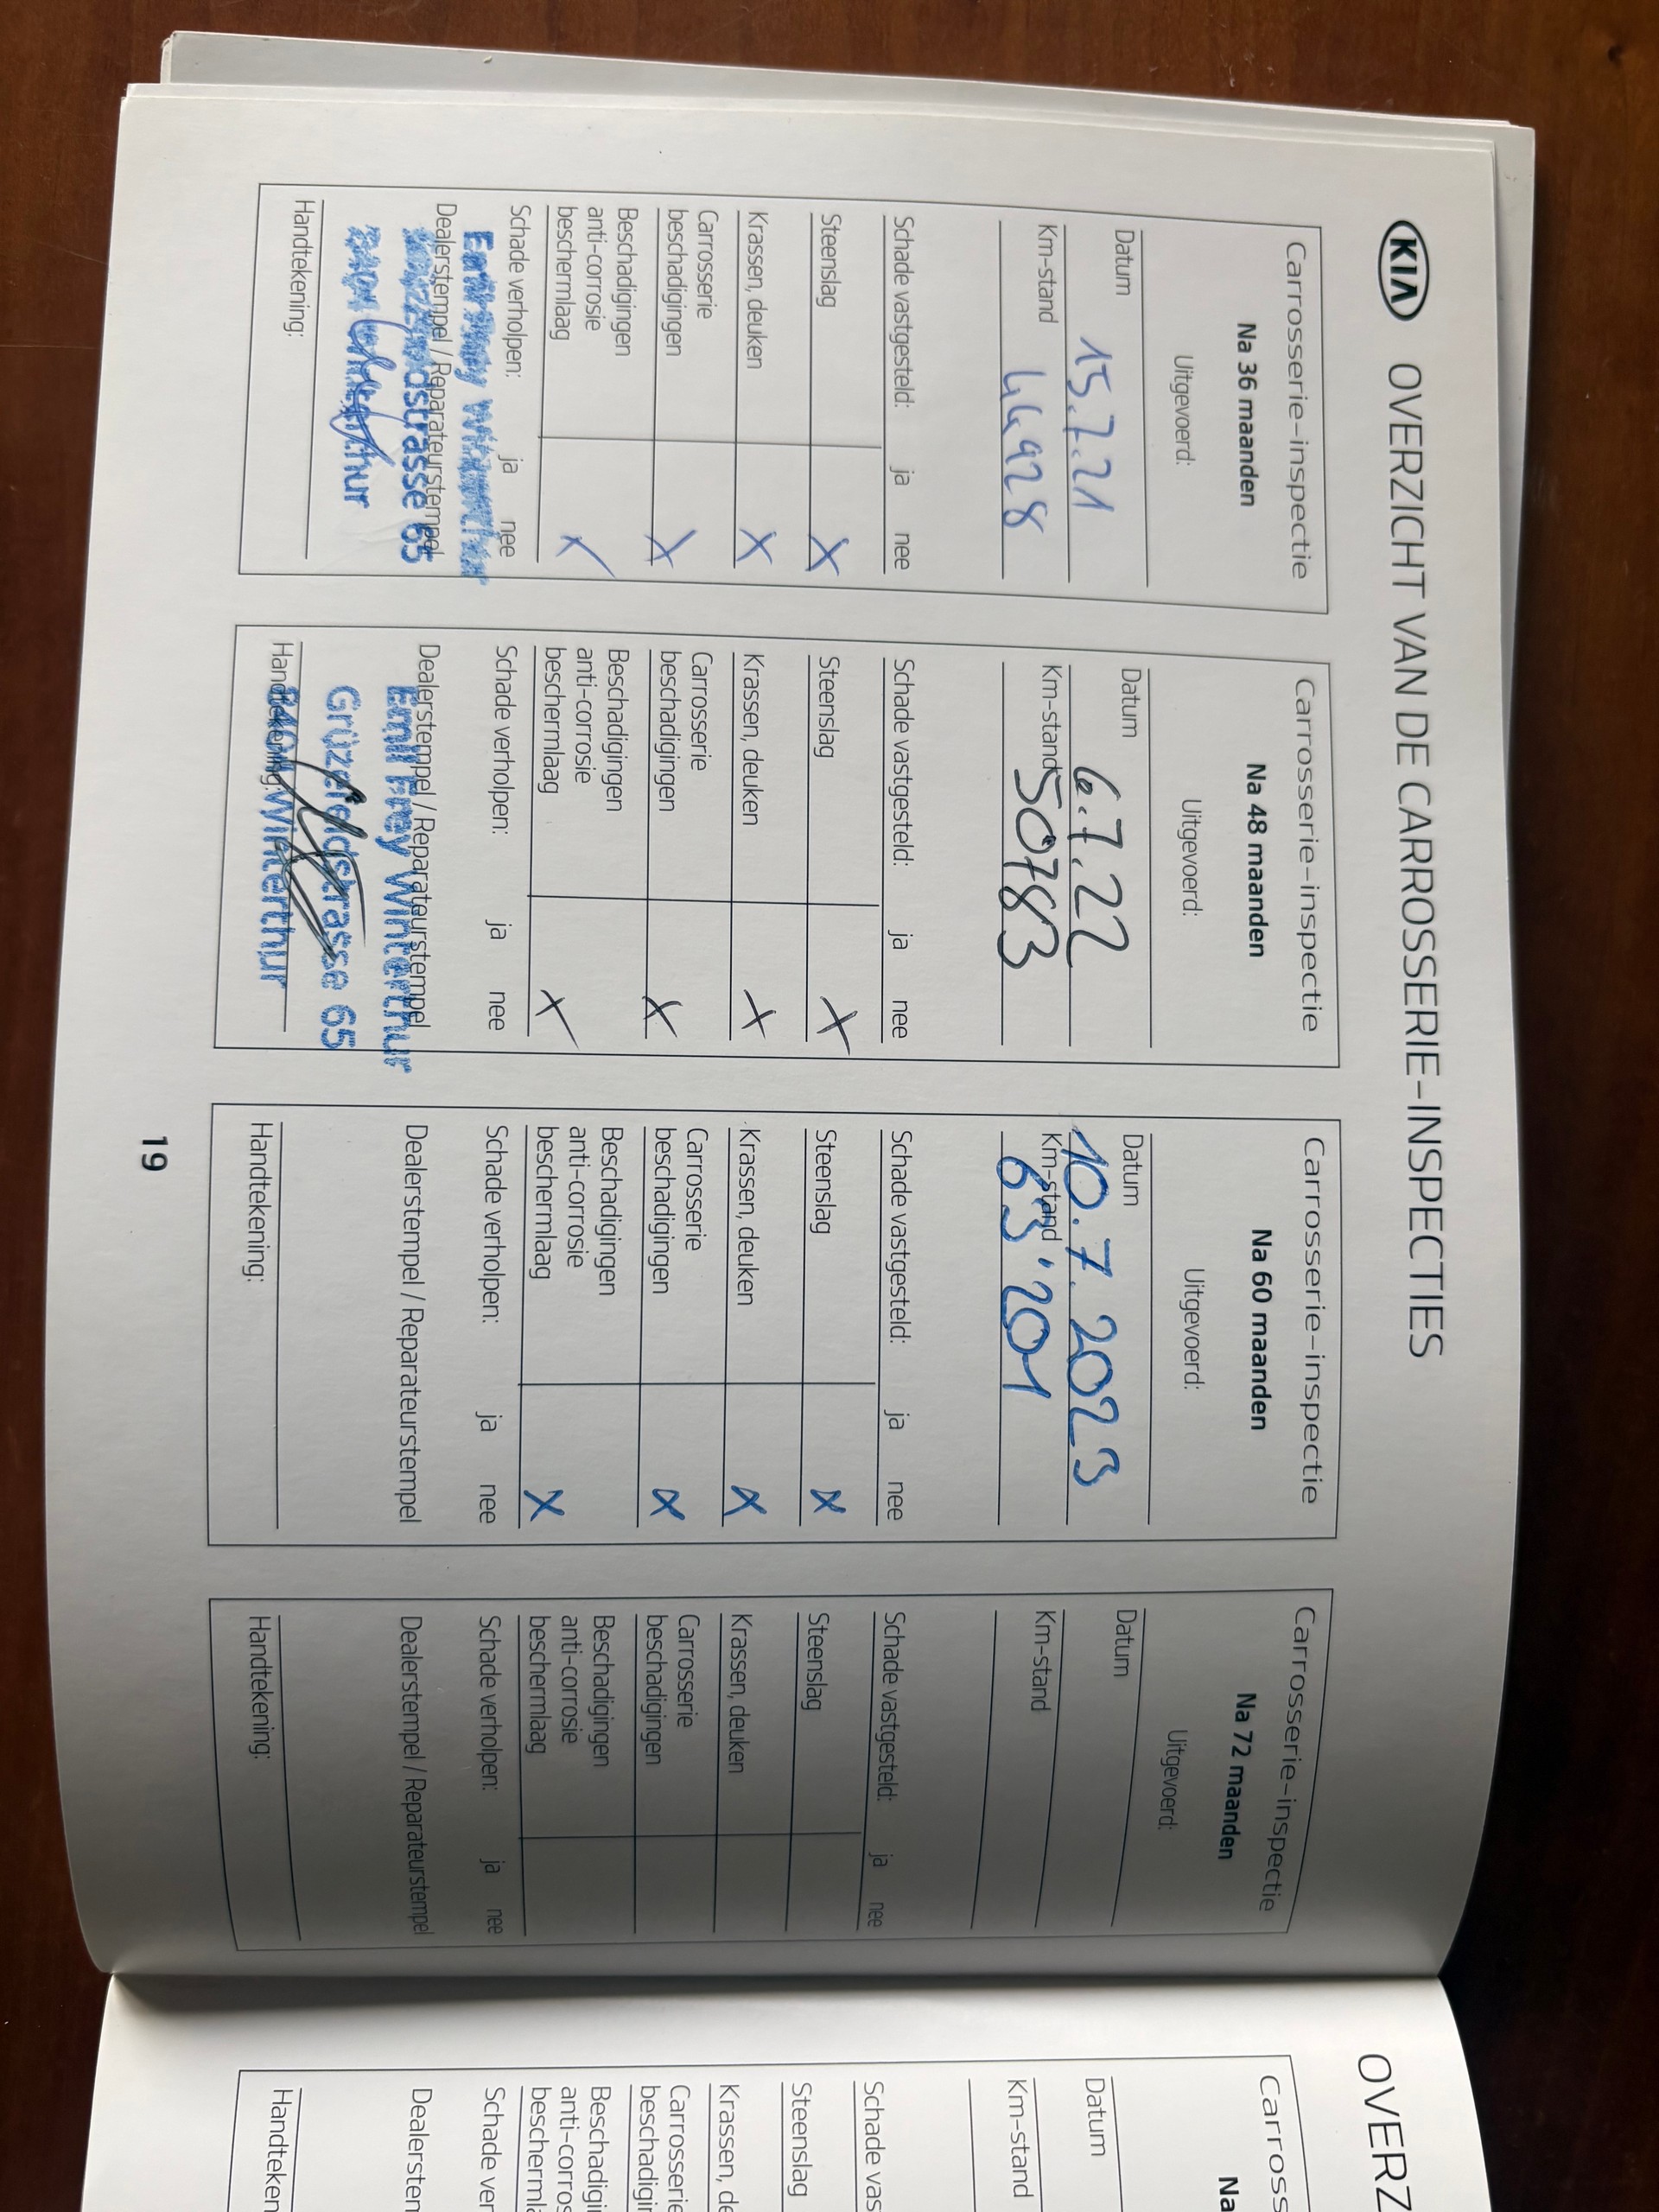 KIA OVERZICHT VAN DE CARROSSERIE-INSPECTIES
Carrosserie-inspectie
Na 36 maanden
Uitgevoerd:
Datum 15.7.21
Km-stand 44928
Schade vastgesteld: ja nee
Steenslag X
Krassen, deuken X
Carrosserie
beschadigingen X
Beschadigingen
anti-corrosie
beschermlaag X
Schade verholpen: ja nee
Dealerstempel / Reparateurstempel
Emil Frey Winterthur
Grüzefeldstrasse 65
8404 Winterthur
Handtekening:
Carrosserie-inspectie
Na 48 maanden
Uitgevoerd:
Datum 6.7.22
Km-stand 50783
Schade vastgesteld: ja nee
Steenslag X
Krassen, deuken X
Carrosserie
beschadigingen X
Beschadigingen
anti-corrosie
beschermlaag X
Schade verholpen: ja nee
Dealerstempel / Reparateurstempel
Emil Frey Winterthur
Grüzefeldstrasse 65
8404 Winterthur
Handtekening:
Carrosserie-inspectie
Na 60 maanden
Uitgevoerd:
Datum 10.7.2023
Km-stand 63'201
Schade vastgesteld: ja nee
Steenslag X
Krassen, deuken X
Carrosserie
beschadigingen X
Beschadigingen
anti-corrosie
beschermlaag X
Schade verholpen: ja nee
Dealerstempel / Reparateurstempel
Handtekening:
Carrosserie-inspectie
Na 72 maanden
Uitgevoerd:
Datum
Km-stand
Schade vastgesteld: ja nee
Steenslag
Krassen, deuken
Carrosserie
beschadigingen
Beschadigingen
anti-corrosie
beschermlaag
Schade verholpen: ja nee
Dealerstempel / Reparateurstempel
Handtekening:
19
OVERZ
Carross
Na
Datum
Km-stand
Schade vas
Steenslag
Krassen, de
Carrosserie
beschadigin
Beschadigi
anti-corros
bescherml
Schade ver
Dealersten
Handteken